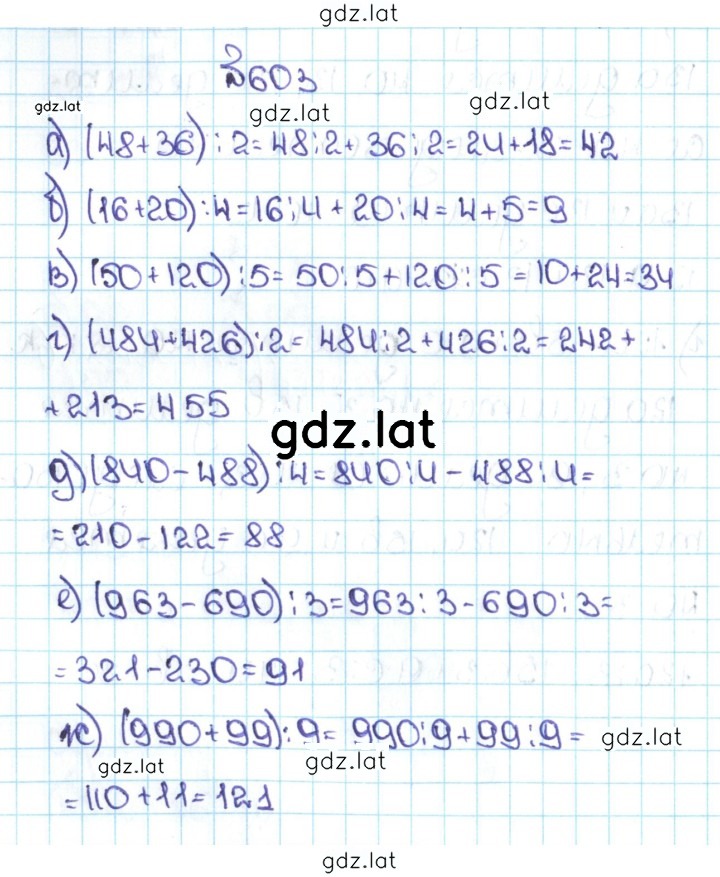 gdz.lat
№603
gdz.lat
gdz.lat
gdz.lat
а) (48+36) : 2 = 48:2 + 36:2 = 24+18 = 42
б) (16+20) : 4 = 16:4 + 20:4 = 4+5=9
в) (50+120) : 5 = 50:5+120:5 = 10+24=34
г) (484+426) : 2 = 484:2+426:2 = 242 +
+213 = 455
gdz.lat
д) (840-488) : 4 = 840:4 - 488:4 =
= 210-122 = 88
е) (963-690) : 3 = 963:3 - 690:3 =
= 321-230 = 91
ж) (990+99) : 9 = 990:9+99:9 =
gdz.lat
gdz.lat
gdz.lat
= 110+11 = 121
gdz.lat